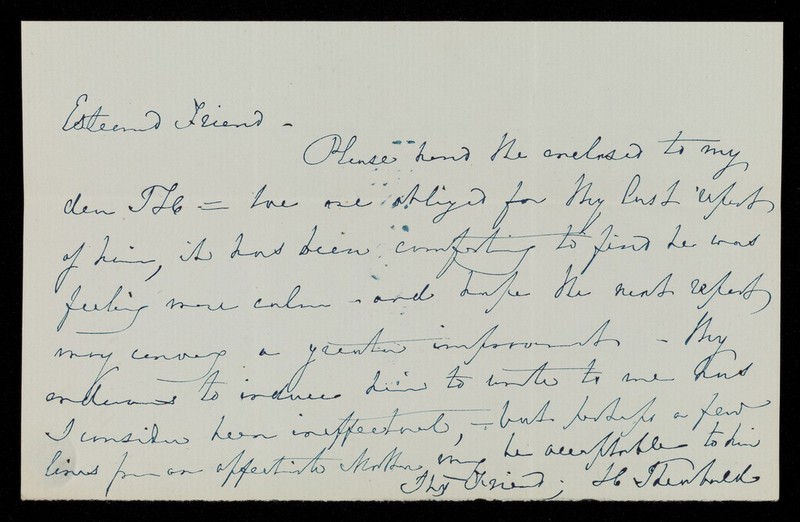 Esteemed Friend -
Please hand the enclosed to my
dear = We are obliged for thy last report
of him, it has been comforting to find he was
feeling more calm - and hope the next report
may convey a greater improvement - Thy
endeavours to induce him to write to me has
I consider been ineffectual, - but perhaps a few
lines from an affectionate Mother may be acceptable to him
Thy Friend, H Theobald